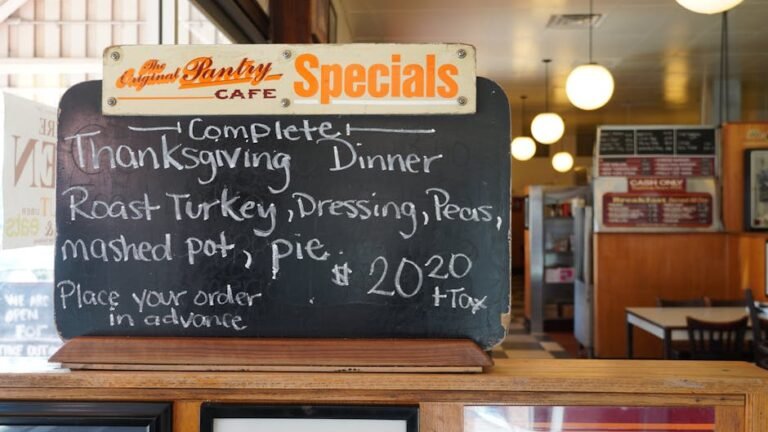 The Original Pantry
CAFE
Specials
Complete
Thanksgiving Dinner
Roast Turkey, Dressing, Peas,
mashed pot, pie
$2020
+ Tax
Place your order
in advance
CASH ONLY
Breakfast
WE ARE
OPEN
FOR
TAKE OUT
UBER
eats